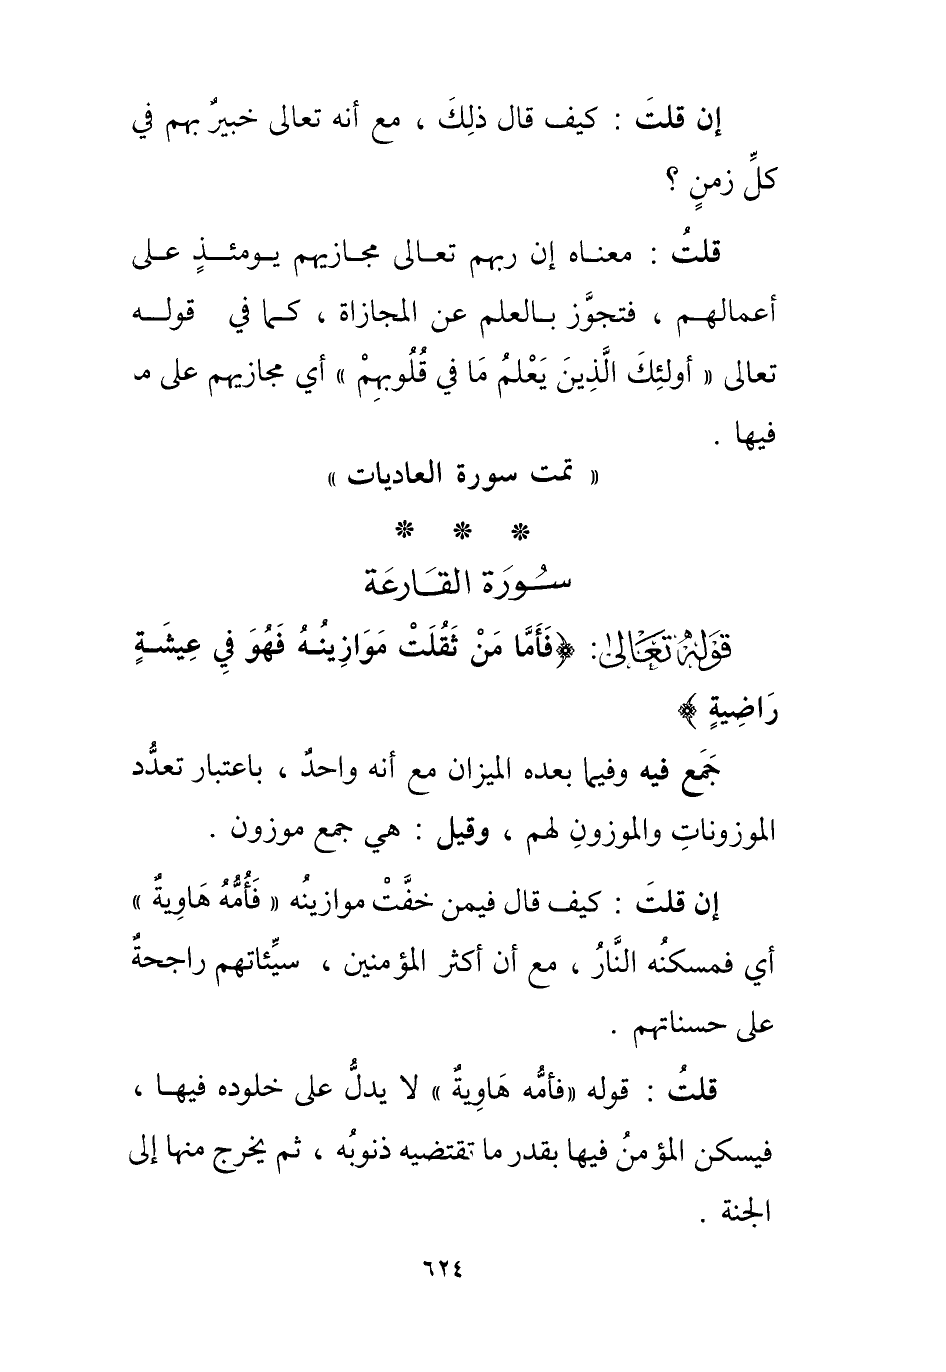 إن قلتَ : كيف قال ذلِكَ ، مع أنه تعالى خبيرٌ بهم في
كلِّ زمنٍ ؟
قلتُ : معناه إن ربهم تعالى مجازيهم يومئذٍ على
أعمالهم ، فتجوَّز بالعلم عن المجازاة ، كما في قوله
تعالى « أولئِكَ الَّذِينَ يَعْلمُ مَا في قُلُوبهِمْ » أي مجازيهم على مـ
فيها .
« تمت سورة العاديات »
* * *
سُورَة القَارعَة
قَوْلُهُ تَعَالىٰ: ﴿فَأَمَّا مَنْ ثَقُلَتْ مَوَازِينُهُ فَهُوَ فِي عِيشَةٍ
رَاضِيةٍ ﴾
جَمَع فيه وفيما بعده الميزان مع أنه واحدٌ ، باعتبار تعدُّد
الموزوناتِ والموزونِ لهم ، وقيل : هي جمع موزون .
إن قلتَ : كيف قال فيمن خفَّتْ موازينُه « فَأُمُّهُ هَاوِيةٌ »
أي فمسكنُه النَّارُ ، مع أن أكثر المؤمنين ، سيِّئاتهم راجحةٌ
على حسناتهم .
قلتُ : قوله «فأمُّه هَاوِيةٌ » لا يدلُّ على خلوده فيها ،
فيسكن المؤمنُ فيها بقدر ما تقتضيه ذنوبُه ، ثم يخرج منها إلى
الجنة .
٦٢٤